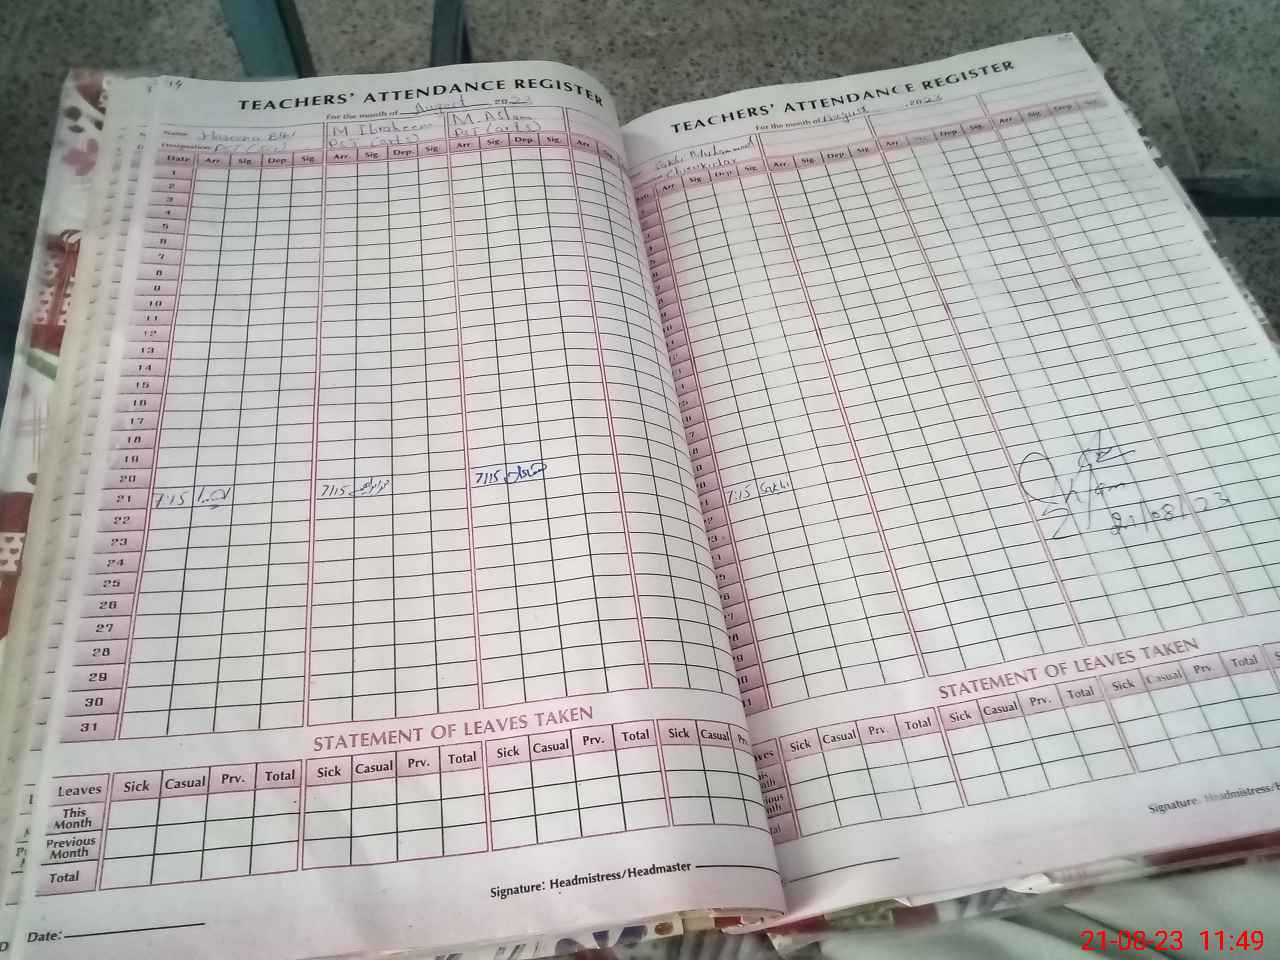 TEACHERS' ATTENDANCE REGISTER
For the month of August 2023
Name:
Designation:
M Ibraheem
PST (arts)
M. Aslam
PST (arts)
Date Arr. Sig. Dep. Sig. Arr. Sig. Dep. Sig. Arr. Sig. Dep. Sig. Arr. Sig.
1
2
3
4
5
6
7
8
9
10
11
12
13
14
15
16
17
18
19
20
21 7:15 7/15 7/15
22
23
24
25
26
27
28
29
30
31
STATEMENT OF LEAVES TAKEN
Leaves Sick Casual Prv. Total Sick Casual Prv. Total Sick Casual Prv. Total Sick Casual Prv.
This Month
Previous Month
Total
Signature: Headmistress/Headmaster
Date:
TEACHERS' ATTENDANCE REGISTER
For the month of August 2023
Sakhi Muhammad
Chowkidar
Arr. Sig. Dep. Sig. Arr. Sig. Dep. Sig. Arr. Sig. Dep. Sig. Arr. Sig. Dep.
7:15 Sakhi
21/08/23
STATEMENT OF LEAVES TAKEN
Sick Casual Prv. Total Sick Casual Prv. Total Sick Casual Prv. Total
Signature: Headmistress/
21-08-23 11:49